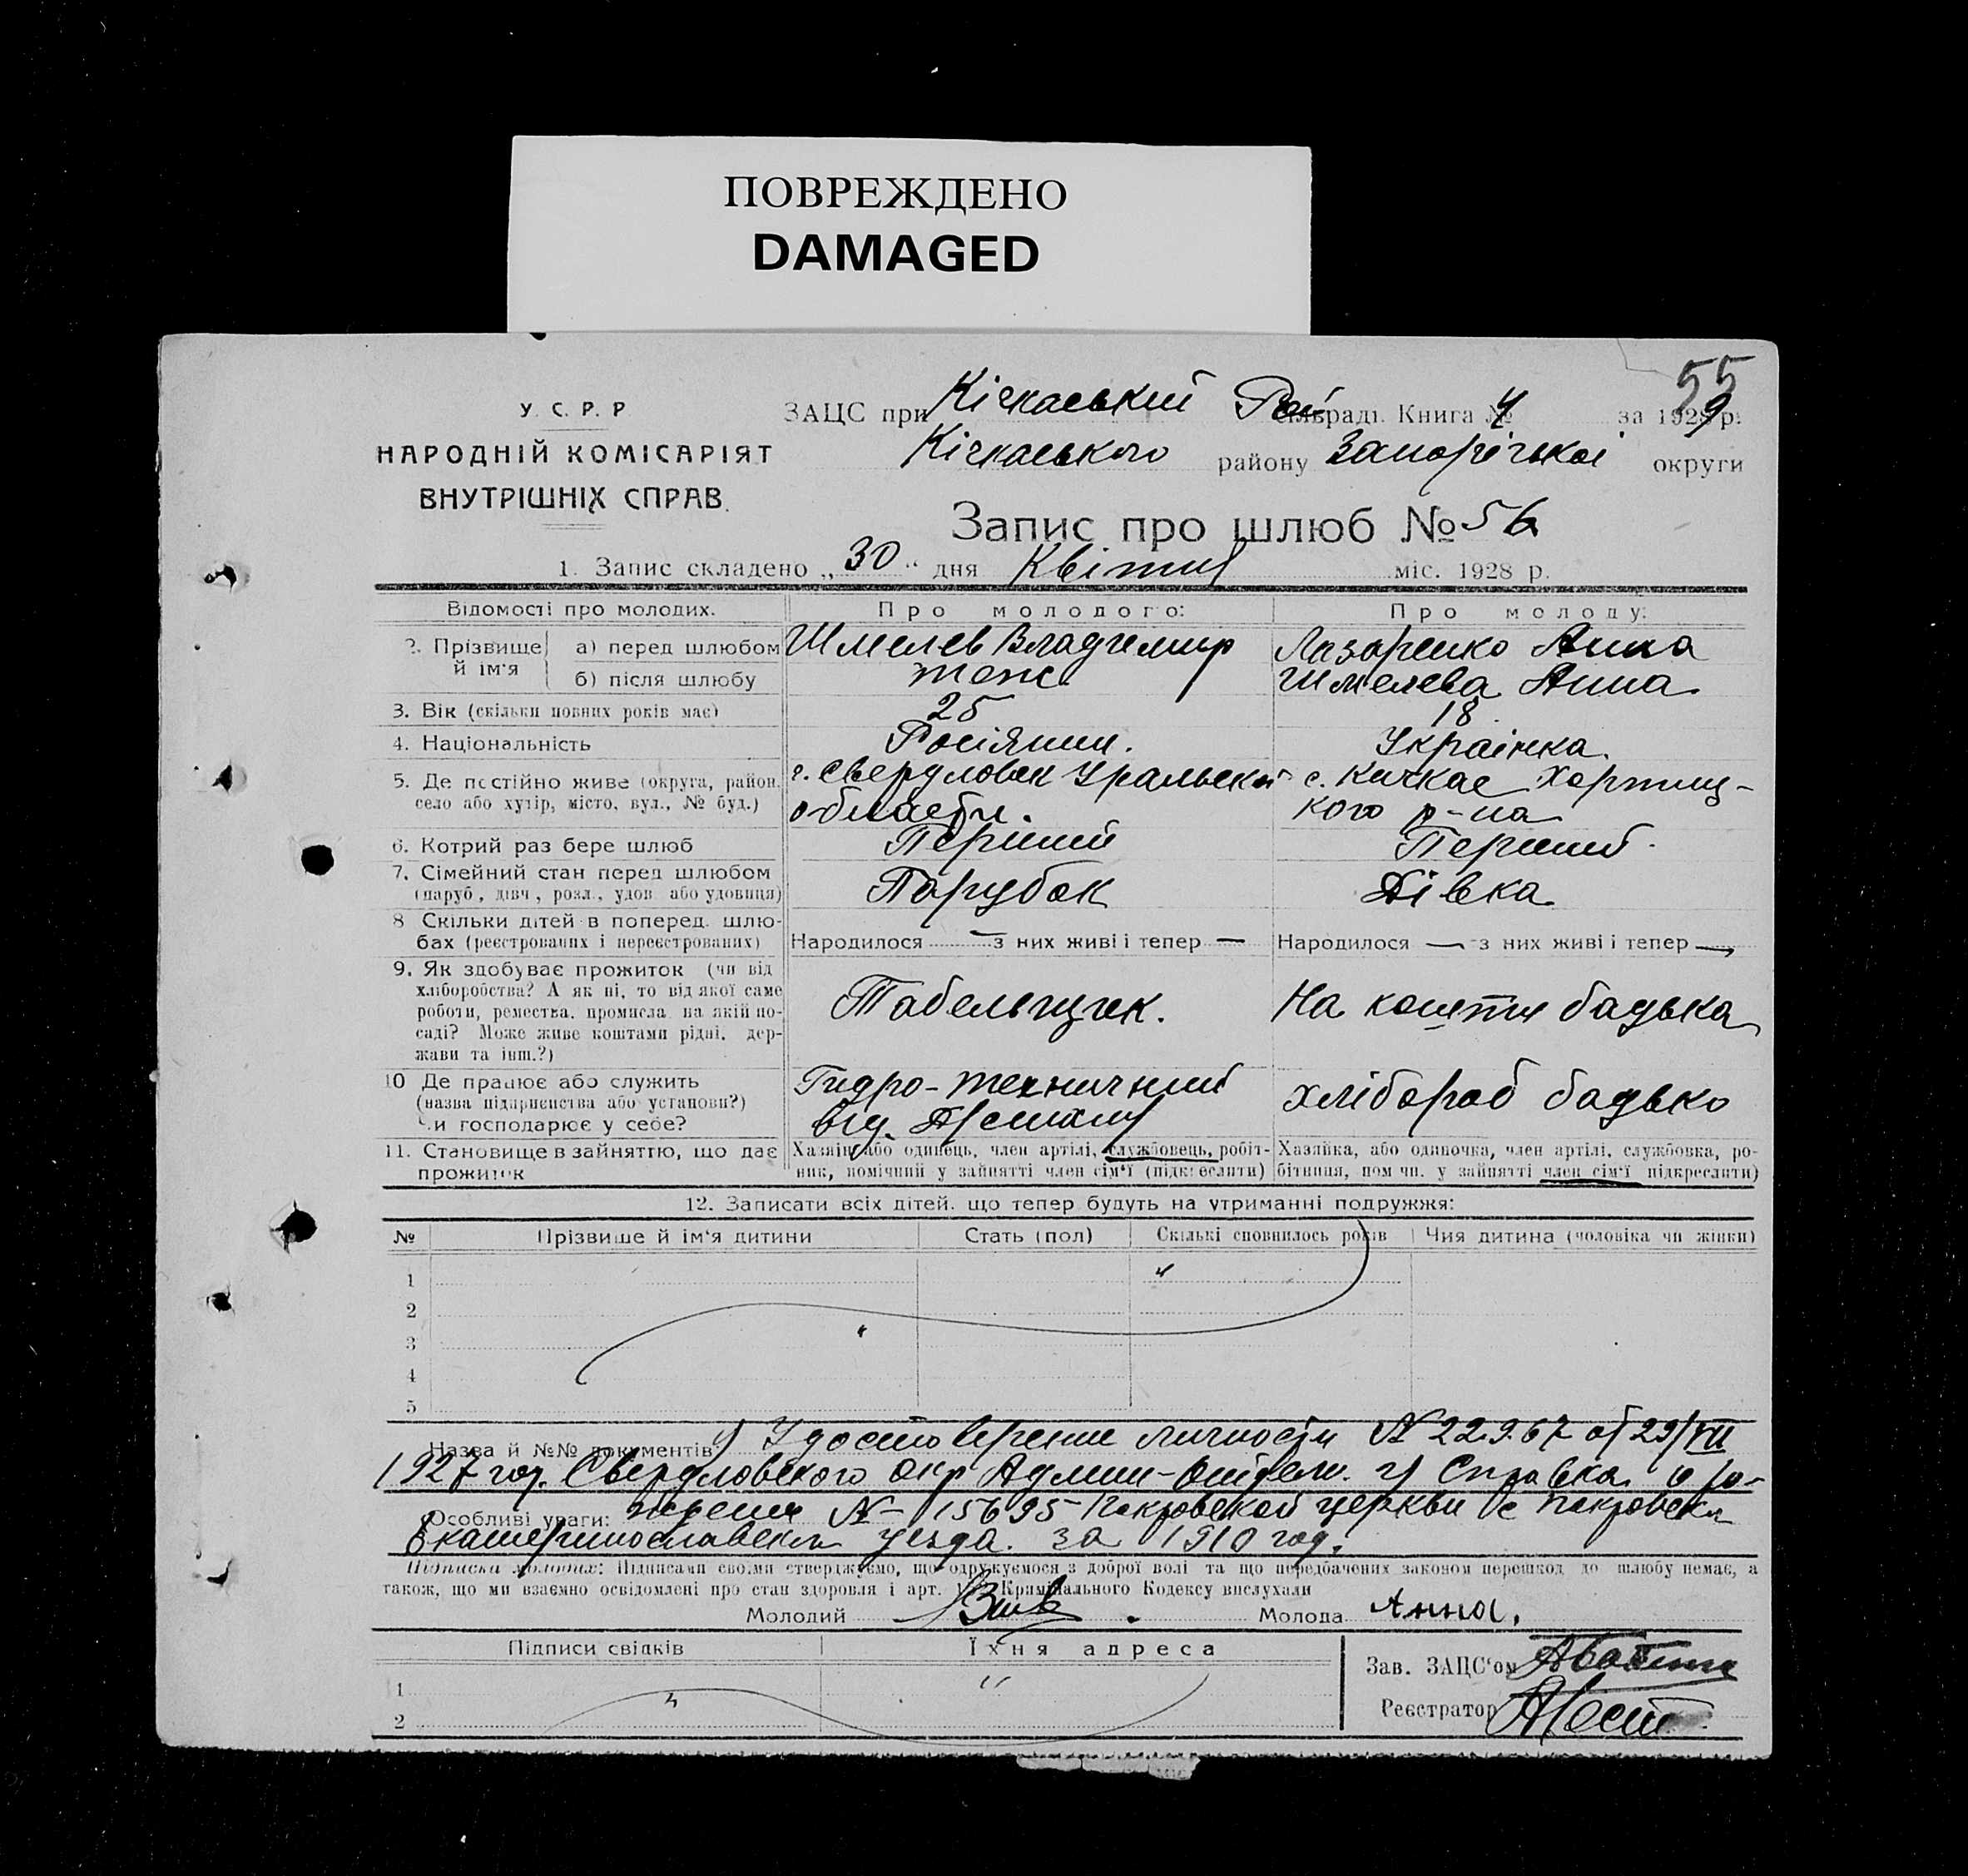 ПОВРЕЖДЕНО
DAMAGED
55
У. С. Р. Р
НАРОДНІЙ КОМІСАРІЯТ
ВНУТРІШНІХ СПРАВ.
ЗАЦС при Кічкаський Рай сільраді. Книга № 4 за 1928 р.
Кічкаського району Запорізької округи
Запис про шлюб № 56
1. Запис складено „30“ дня Квітня міс. 1928 р.
Відомості про молодих. Про молодого: Про молоду:
2. Прізвище й ім'я а) перед шлюбом Шмелев Владиемир Лазаренко Анна
б) після шлюбу теж Шмелева Анна
3. Вік (скільки повних років має) 25 18
4. Національність Росіянин. Українка.
5. Де постійно живе (округа, район, г. Свердловск Уральской с. Кичкас Хортиц-
село або хутір, місто, вул., № буд.) области. кого р-на
6. Котрий раз бере шлюб Перший Перший
7. Сімейний стан перед шлюбом Парубок Дівка
(паруб, дівч, розл., удов. або удовиця)
8 Скільки дітей в поперед. шлю-
бах (реєстрованих і нереєстрованих) Народилося — з них живі і тепер — Народилося — з них живі і тепер —
9. Як здобуває прожиток (чи від
хліборобства? А як ні, то від якої саме
роботи, ремества, промисла, на якій по- Табельщик. На кошти бадька
саді? Може живе коштами рідні, дер-
жави та інш.?)
10 Де працює або служить Гидро-техничний хлібороб бадько
(назва підприємства або установи?)
Чи господарює у себе? від.
11. Становище в зайняттю, що дає Хазяїн або одинець, член артілі, службовець, робіт- Хазяйка, або одиночка, член артілі, службовка, ро-
прожиток ник, помічний у зайнятті член сім'ї (підкреслити) бітниця, пом чн. у зайнятті член сім'ї підкреслити)
12. Записати всіх дітей, що тепер будуть на утриманні подружжя:
№ Прізвище й ім'я дитини Стать (пол) Скількі сповнилось років Чия дитина (чоловіка чи жінки)
1
2
3
4
5
Назва й №№ документів: 1) Удостоверение личности № 22967 от 29/VII
1927 год. Свердловского Окр Админ-Отдела. 2) Справка о ро-
Особливі уваги: ждении № 15695 Покровской церкви с Покровска
Екатеринославск уезда. за 1910 год.
Підписка молодих: Підписами своїми стверджуємо, що одружуємося з доброї волі та що передбачених законом перешкод до шлюбу немає, а
також, що ми взаємно освідомлені про стан здоровля і арт. Кримінального Кодексу вислухали
Молодий Молода Анна.
Підписи свідків Їхня адреса
Зав. ЗАЦС'ом
1
Реєстратор
2